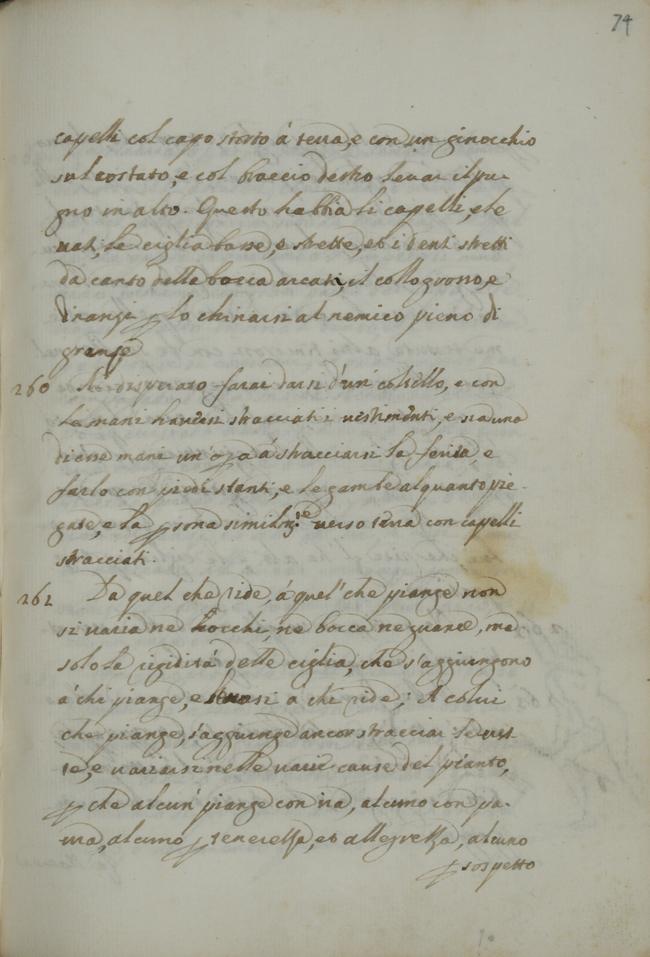 74
capelli col capo storto á terra, e con un ginocchio
sul costato, e col braccio destro levar il pu-
gno in alto. Questo habbia li capelli, ele
vati, le ciglia basse, e strette, et i denti stretti
da canto della bocca arcati, il collo grosso, e
dinanzi p lo chinarsi al nemico pieno di
grenze
260 Al disperato farai darsi d'un' coltello, e con
le mani haversi stracciati i vestimenti, e sia una
di esse mani un' opra á stracciarsi la ferita, e
farlo con piedi stanti, e le gambe alquanto pie-
gate, e la psona similmte verso terra con capelli
stracciati.
262 Da quel che ride, á quel' che piange non
si varia ne hocchi, ne bocca ne guance, ma
solo la rigiditá delle ciglia, che s'aggiungono
á chi piange, e levasi á chi ride; A colui
che piange, s'aggiunge ancor stracciar le ves
te, e variarsi nelle varie cause del pianto,
p che alcun' piange con ira, alcuno con pa-
ura, alcuno p tenerezza, et allegrezza, alcuno
p sospetto